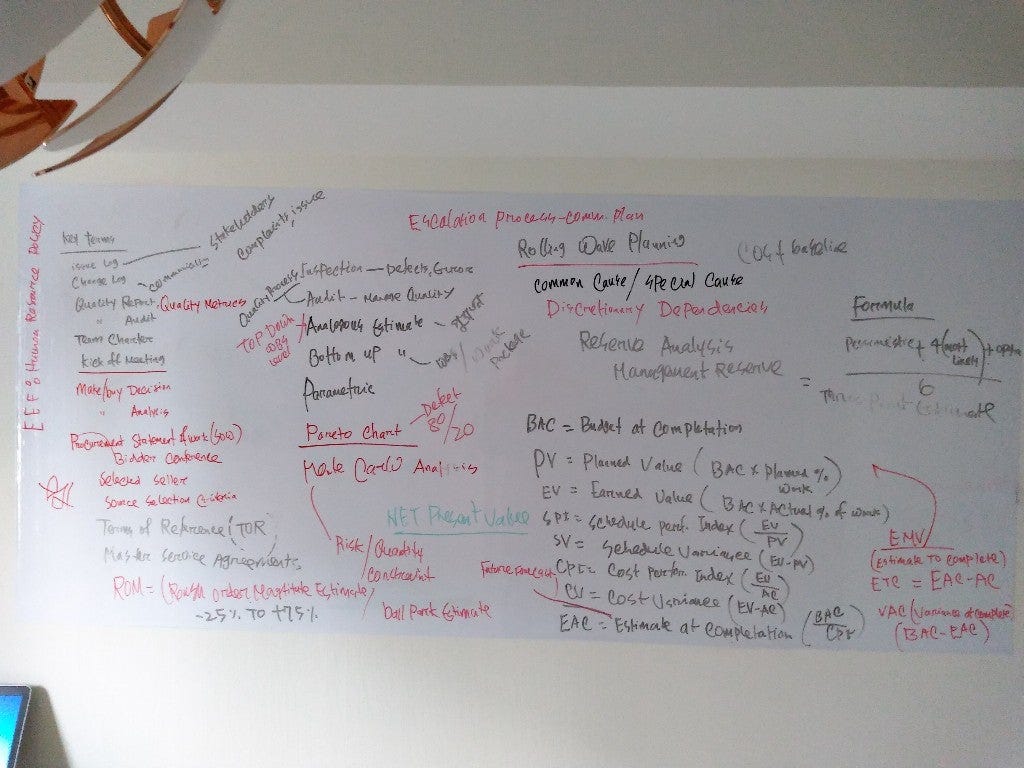 EEF: Human Resource Policy
Key Terms
issue log
Stakeholders
Complaints, issue
Change Log
Quality Report, Quality Metrics
" Audit
Team Charter
Kick off Meeting
Make/buy Decision
" Analysis
Procurement Statement of work (SOW)
Bidder Conference
Selected seller
Source selection Criteria
Terms of Reference (TOR)
Master Service Agreements
ROM = (Rough order Magnitude Estimate
-25% TO +75%
Escalation process-comm. plan
Inspection — Defects, Errors
Audit - Manage Quality
TOP Down
WBS
level
Analogous Estimate
Bottom up "
WBS/Work
Package
Parametric
Pareto Chart
Defect
80/20
Analysis
NET Present Value
Risk/Quantity
Constraint
Ball Park Estimate
Rolling Wave Planning
Cost baseline
Common Cause/Special Cause
Discretionary Dependencies
Reserve Analysis
Management Reserve
Formula
+ 4(most
likely) +
6
=
Three Point Estimate
BAC = Budget at Completation
PV = Planned Value (BAC x Planned %
work)
EV = Earned Value (BAC x Actual % of work)
SPI = Schedule perf. Index (EV/PV)
SV = Schedule Variance (EV-PV)
Future Forecast
CPI = Cost perfor. Index (EV/AC)
CV = Cost Variance (EV-AC)
EAC = Estimate at Completation (BAC/CPI)
EMV
(Estimate To Complete)
ETC = EAC-AC
VAC (Variance at Complete)
(BAC-EAC)